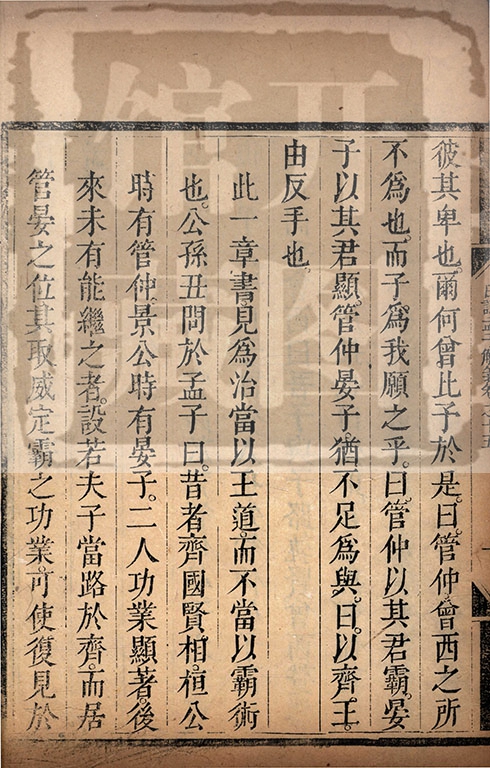 彼其卑也。爾何曾比予於是。曰。管仲曾西之所
不為也。而子為我願之乎。曰。管仲以其君霸。晏
子以其君顯。管仲晏子猶不足為與。曰。以齊王。
由反手也。
此一章書見為治當以王道而不當以霸術
也。公孫丑問於孟子曰。昔者齊國賢相。桓公
時有管仲。景公時有晏子。二人功業顯著。後
來未有能繼之者。設若夫子當路於齊。而居
管晏之位。其取威定霸之功業。可使復見於